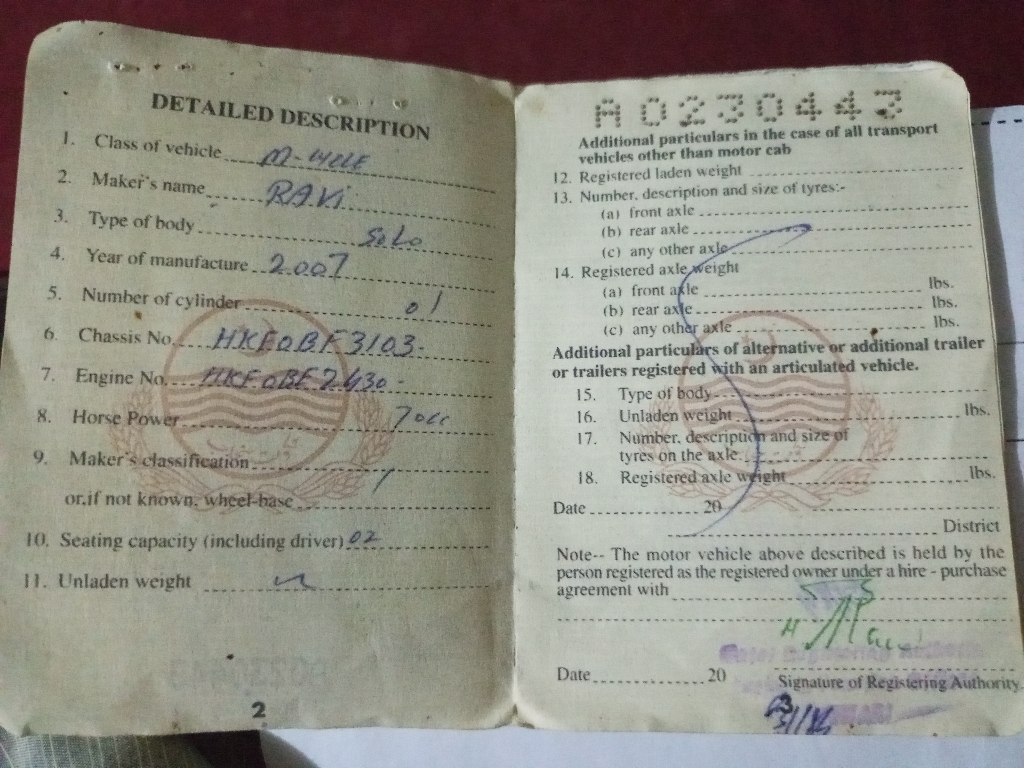 DETAILED DESCRIPTION
1. Class of vehicle M-
2. Maker's name RAVi
3. Type of body Solo
4. Year of manufacture 2007
5. Number of cylinder 01
6. Chassis No. HKFOBF3103-
7. Engine No. HKFOBF2430-
8. Horse Power 70cc
9. Maker's classification
or.if not known. wheel-base
10. Seating capacity (including driver) 02
11. Unladen weight
2
A0230443
Additional particulars in the case of all transport
vehicles other than motor cab
12. Registered laden weight
13. Number, description and size of tyres:-
(a) front axle
(b) rear axle
(c) any other axle
14. Registered axle weight
(a) front axle lbs.
(b) rear axle lbs.
(c) any other axle lbs.
Additional particulars of alternative or additional trailer
or trailers registered with an articulated vehicle.
15. Type of body
16. Unladen weight lbs.
17. Number, description and size of
tyres on the axle
18. Registered axle weight lbs.
Date 20
District
Note-- The motor vehicle above described is held by the
person registered as the registered owner under a hire - purchase
agreement with
Date 20
Signature of Registering Authority